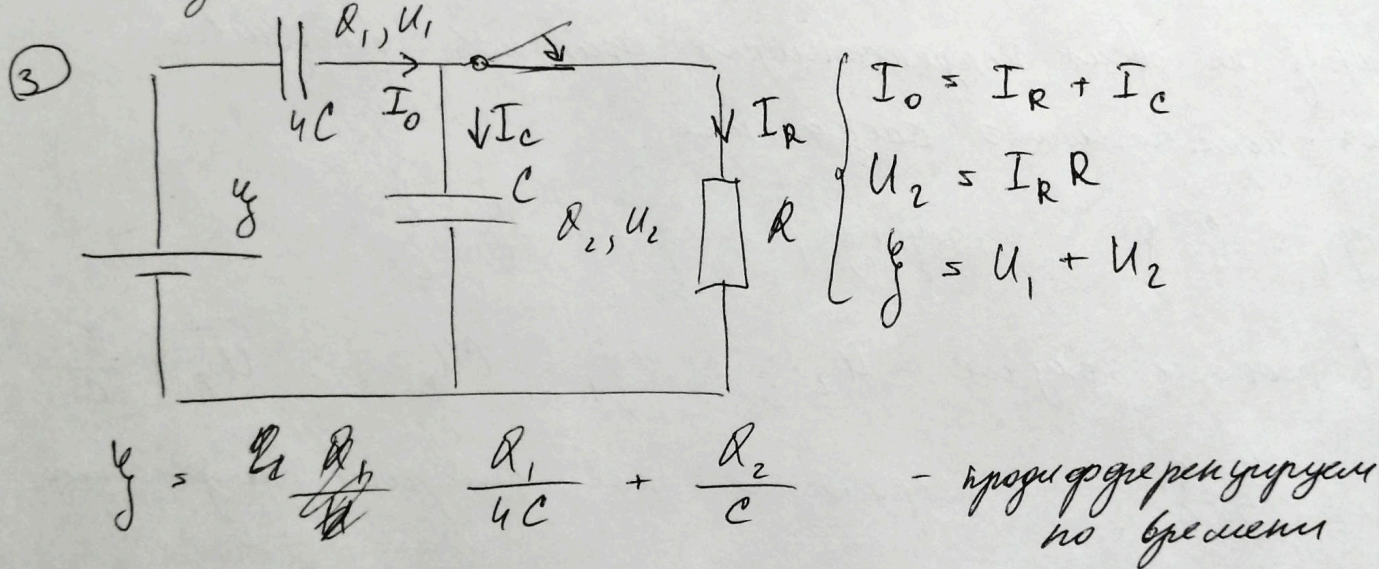 3
Q₁, U₁
4C
I₀
I_C
C
Q₂, U₂
I_R
R
ℰ
I₀ = I_R + I_C
U₂ = I_R R
ℰ = U₁ + U₂
ℰ = Q₁/4C + Q₂/C - продифференцируем
по времени